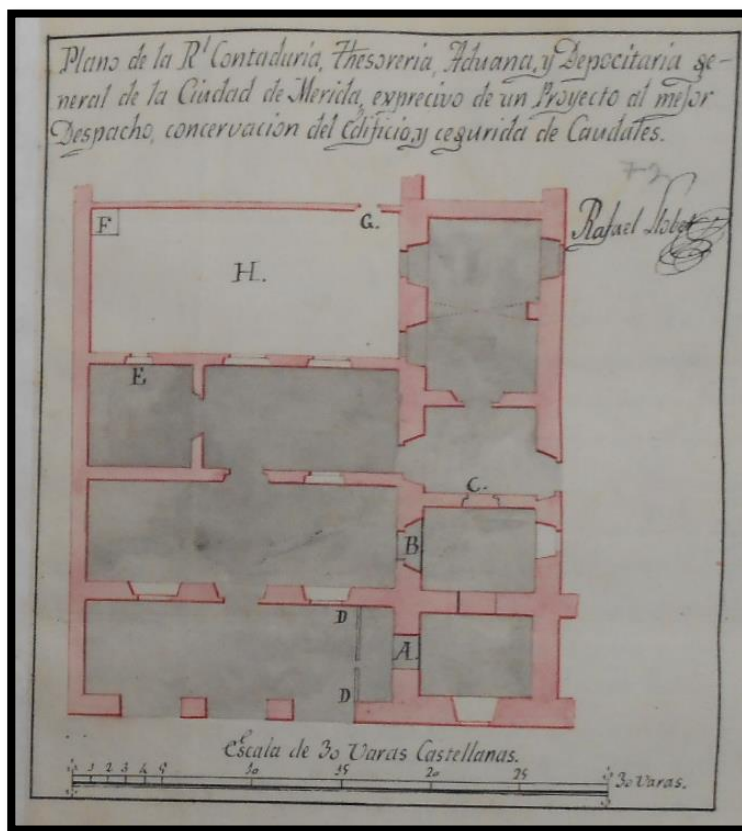 Plano de la Rl Contaduria, Thesoreria, Aduana, y Depocitaria ge-
neral de la Ciudad de Merida, exprecivo de un Proyecto al mejor
Despacho, concervacion del Edificio, y cegurida de Caudales.
72
Rafael Llobet
F
G.
H.
E
C.
B
D
A.
D
Escala de 30 Varas Castellanas.
1 2 3 4 5 10 15 20 25 30 Varas.